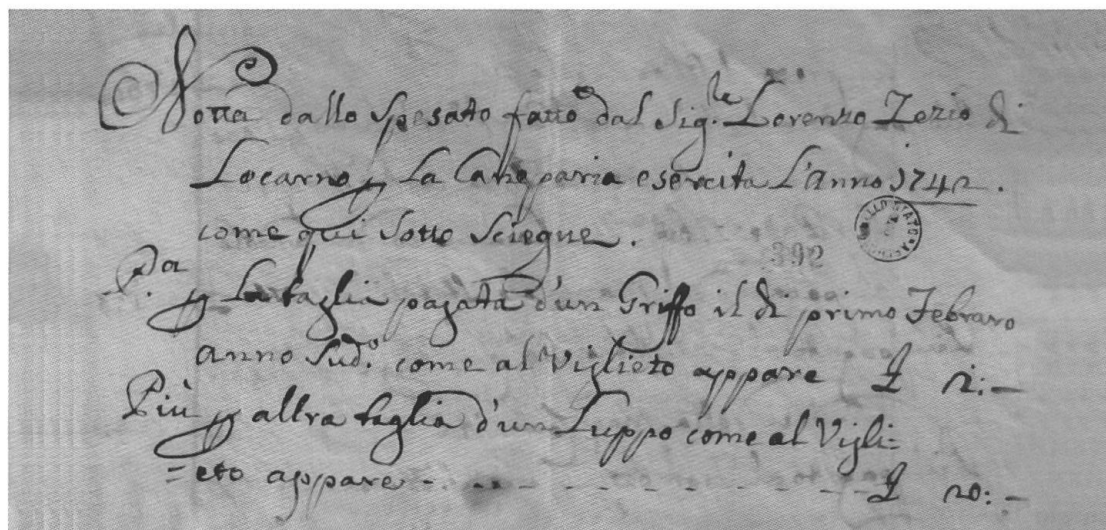 Notta dallo Spesato fatto dal Sig.re Lorenzo Zezio di
Locarno p La Caneparia esercita L'Anno 1742.
come qui sotto sciegue.
392
P.a p La taglia pagata d'un Griffo il di primo Febraro
anno Sud.o come al Viglieto appare £ 2:—
Più p altra taglia d'un Luppo come al Vigli=
=eto appare - - - - - - - - - - £ 20:—